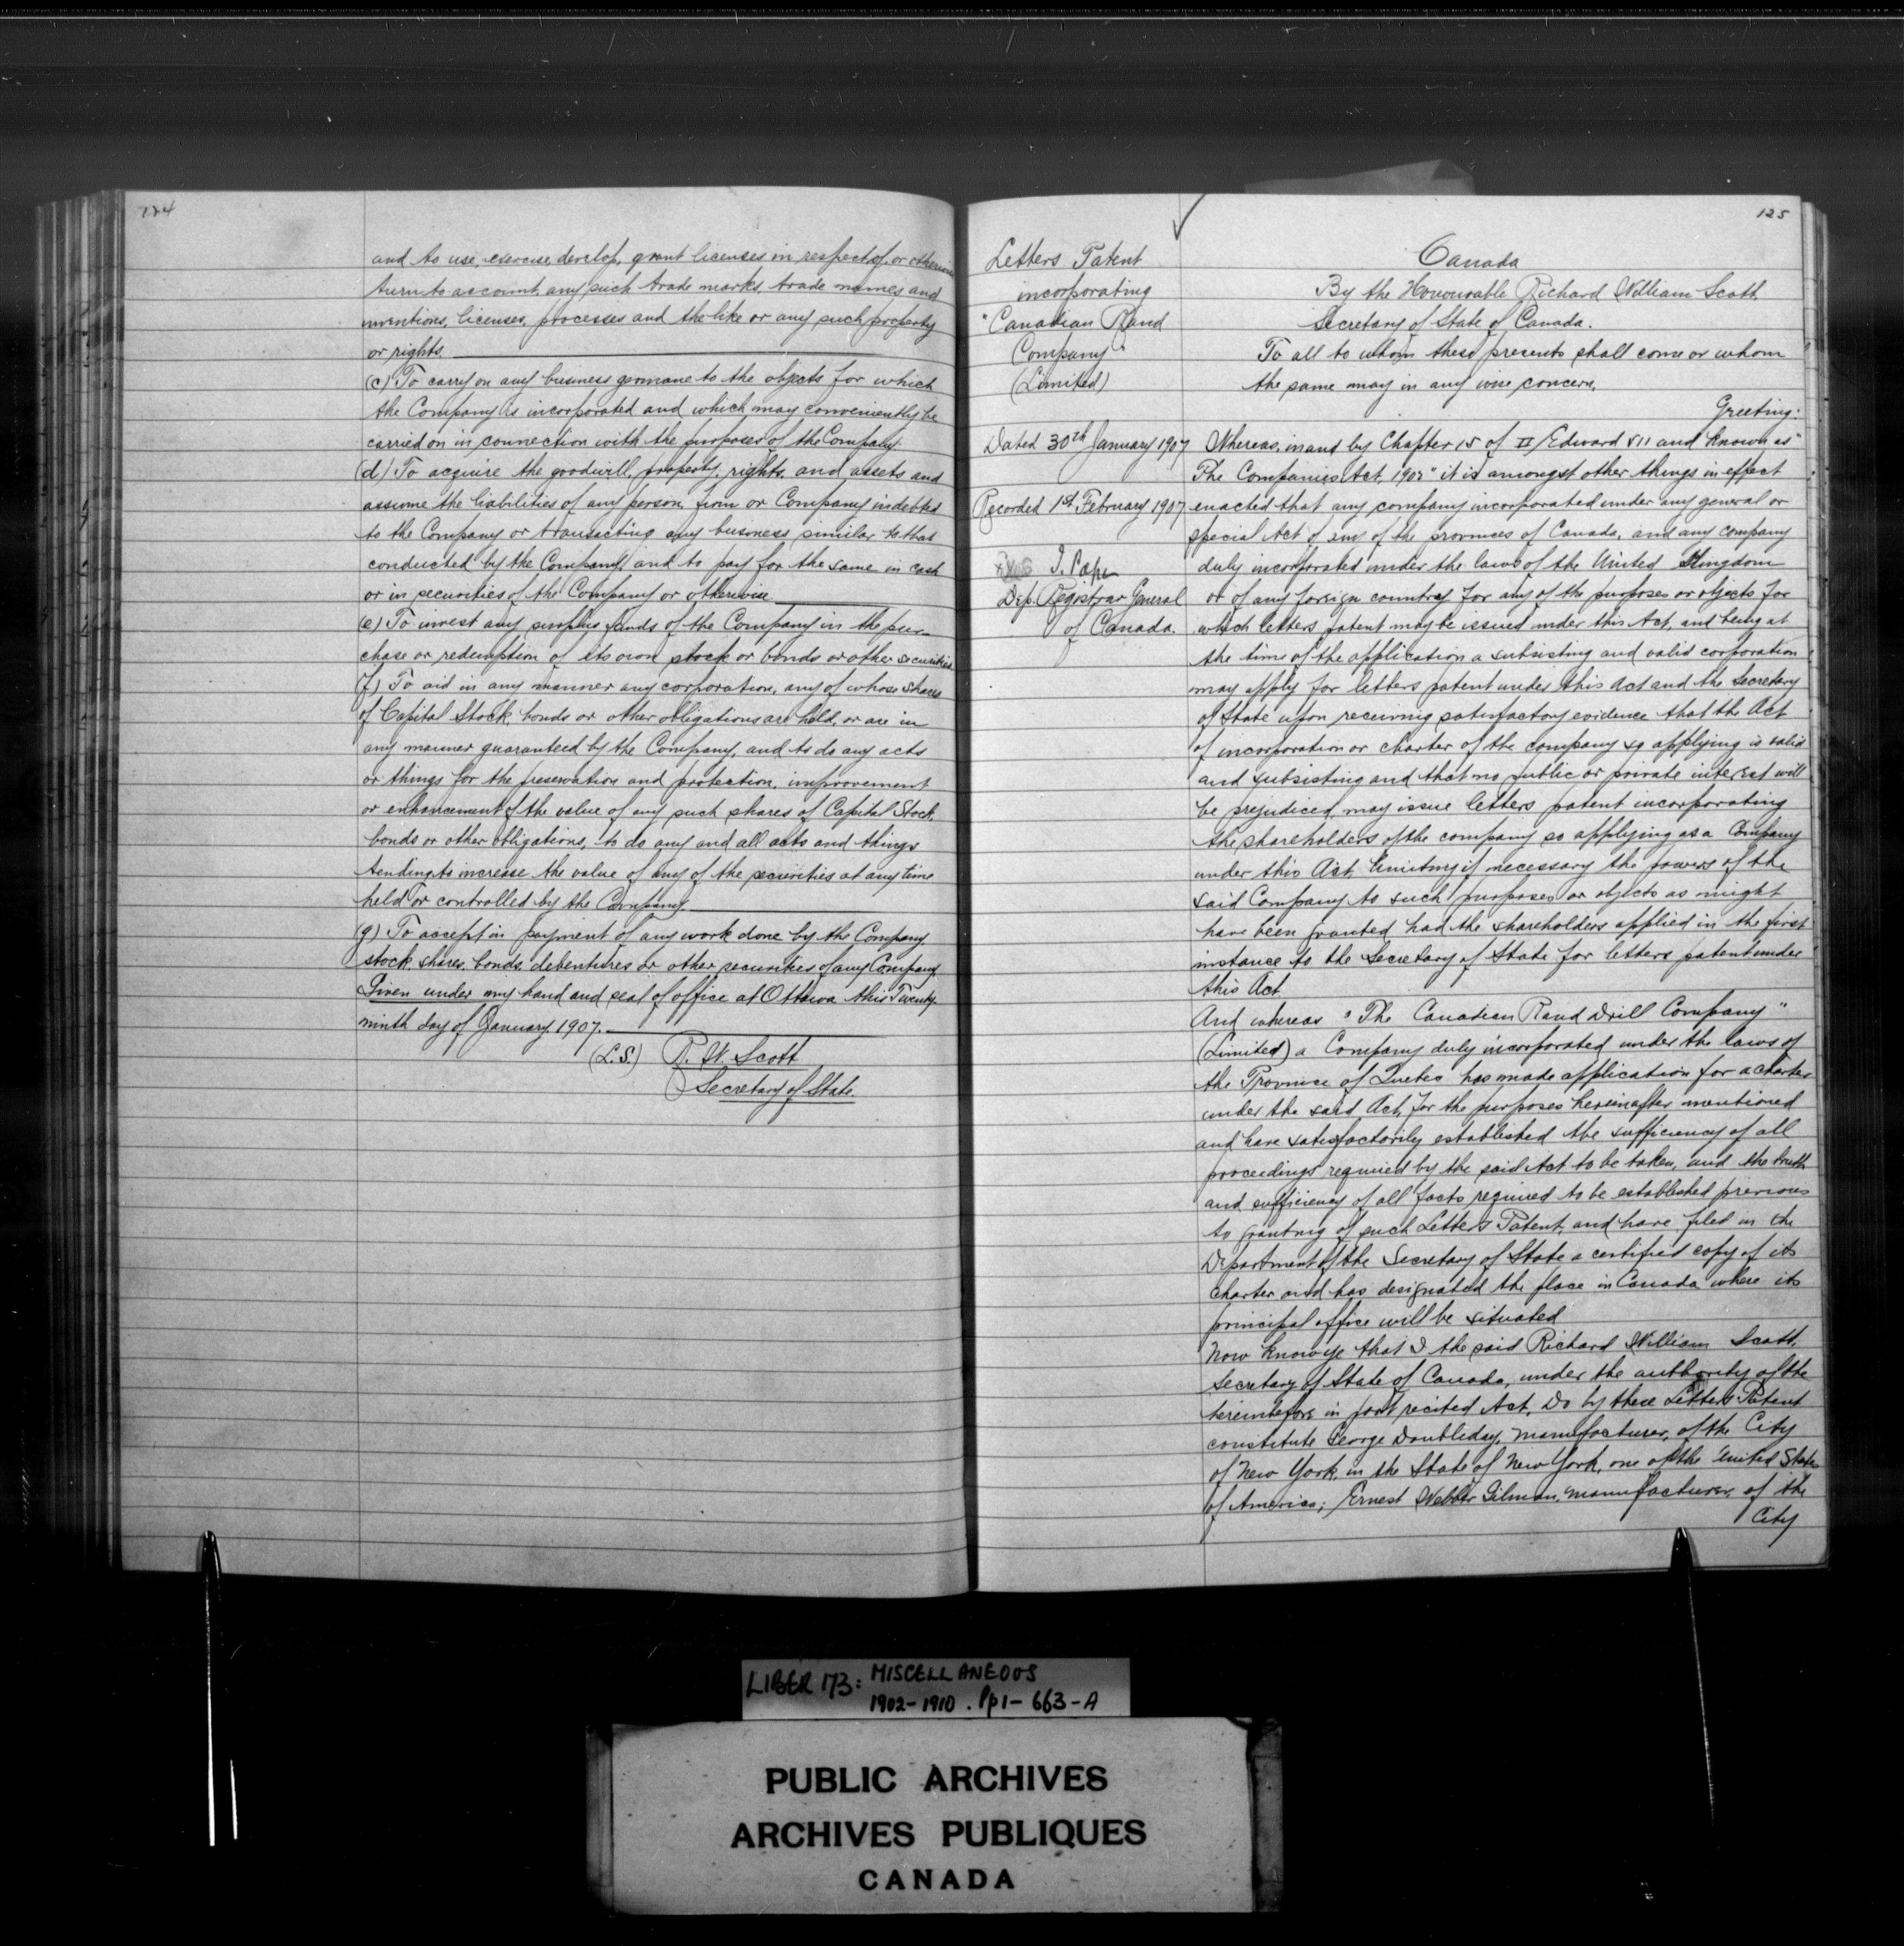 124
and to use, exercise, develop, grant licenses in respect of, or otherwise
turn to account, any such trade marks, trade names and
inventions, licenses, processes and the like or any such property
or rights.
(c) To carry on any business germane to the objects for which
the Company is incorporated and which may conveniently be
carried on in connection with the purposes of the Company.
(d) To acquire the goodwill, property, rights, and assets and
assume the liabilities of any person, firm or Company indebted
to the Company or transacting any business similar to that
conducted by the Company, and to pay for the same in cash
or in securities of the Company or otherwise.
(e) To invest any surplus funds of the Company in the pur-
chase or redemption of its own stock or bonds or other securities
(f) To aid in any manner any corporation, any of whose shares
of Capital Stock, bonds or other obligations are held, or are in
any manner guaranteed by the Company, and to do any acts
or things for the preservation and protection, improvement
or enhancement of the value of any such shares of Capital Stock,
bonds or other obligations, to do any and all acts and things
tending to increase the value of any of the securities at any time
held or controlled by the Company.
(g) To accept in payment of any work done by the Company
stock, shares, bonds, debentures or other securities of any Company.
Given under my hand and seal of office at Ottawa this Twenty
ninth day of January, 1907.
(L.S.) R. W. Scott
Secretary of State.
125
Letters Patent
incorporating
"Canadian Rand
Company"
(Limited)
Dated 30th January 1907
Recorded 1st February 1907
Dep. Registrar General
of Canada.
Canada
By the Honourable Richard William Scott,
Secretary of State of Canada.
To all to whom these presents shall come or whom
the same may in any wise concern,
Greeting:
Whereas, in and by Chapter 15 of II Edward VII and known as "
The Companies Act, 1902" it is amongst other things in effect
enacted that any company incorporated under any general or
special Act of any of the provinces of Canada, and any company
duly incorporated under the laws of the United Kingdom
or of any foreign country for any of the purposes or objects for
which letters patent may be issued under this Act, and being at
the time of the application a subsisting and valid corporation
may apply for letters patent under this Act and the Secretary
of State upon receiving satisfactory evidence that the Act
of incorporation or charter of the company so applying is valid
and subsisting and that no public or private interest will
be prejudiced, may issue letters patent incorporating
the shareholders of the company so applying as a Company
under this Act limiting if necessary the powers of the
said Company to such purposes or objects as might
have been granted had the shareholders applied in the first
instance to the Secretary of State for letters patent under
this Act
And whereas "The Canadian Rand Drill Company"
(Limited) a Company duly incorporated under the laws of
the Province of Quebec has made application for a charter
under the said Act, for the purposes hereinafter mentioned
and have satisfactorily established the sufficiency of all
proceedings required by the said Act to be taken, and the truth
and sufficiency of all facts required to be established previous
to granting of such Letters Patent, and have filed in the
Department of the Secretary of State a certified copy of its
charter and has designated the place in Canada where its
principal office will be situated
Now Know ye that I the said Richard William Scott,
Secretary of State of Canada, under the authority of the
hereinbefore in part recited Act, Do by these Letters Patent
constitute George Doubleday, manufacturer, of the City
of New York, in the State of New York, one of the United States
of America; Ernest Webber Gilman, manufacturer, of the
City
LIBER 173: MISCELLANEOUS
1902-1910. Pp 1-663-A
PUBLIC ARCHIVES
ARCHIVES PUBLIQUES
CANADA